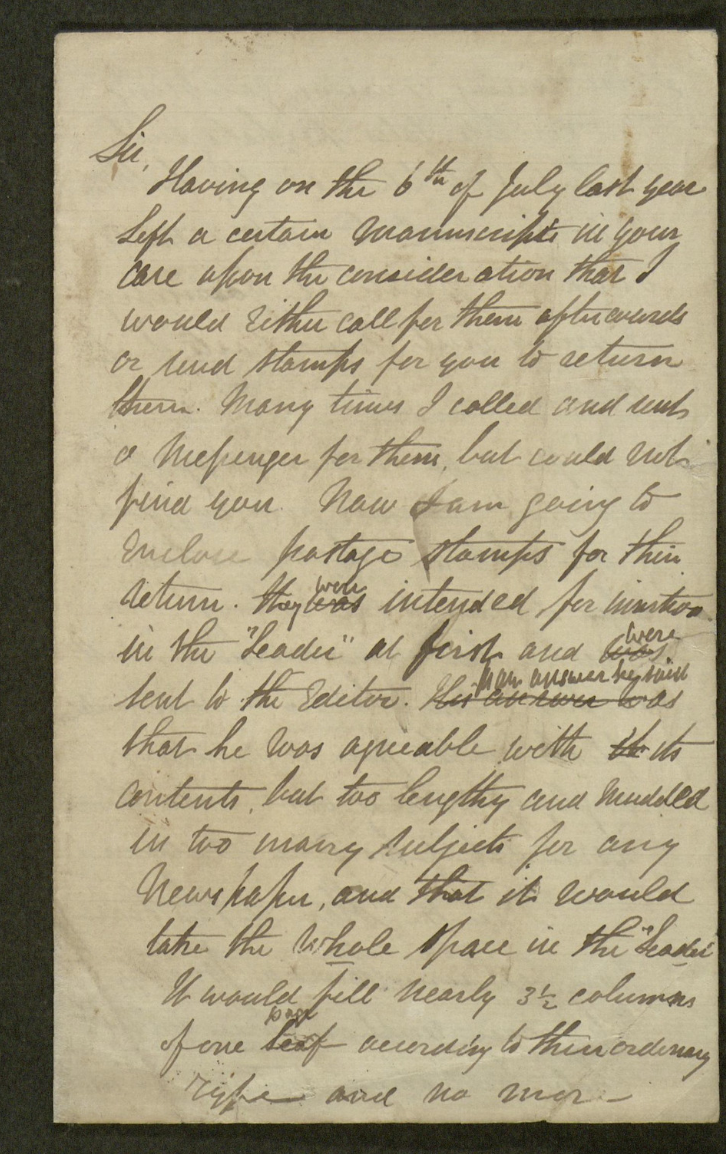 Sir,
Having on the 6th of July last year
left a certain manuscripts in your
care upon the consideration that I
would either call for them afterwards
or send stamps for you to return
them. Many times I called and sent
a Messenger for them, but could not
find you. Now I am going to
Enclose postage stamps for their
return. They were
was intended for insertion
in the "Leader" at first and were
was
sent to the Editor. In answer he said
His answer was
that he was agreeable with its
contents, but too lengthy and muddled
in too many subjects for any
Newspaper, and that it would
take the whole space in the "Leader"
It would fill nearly 3½ columns
of one page
leaf according to their ordinary
type and no more